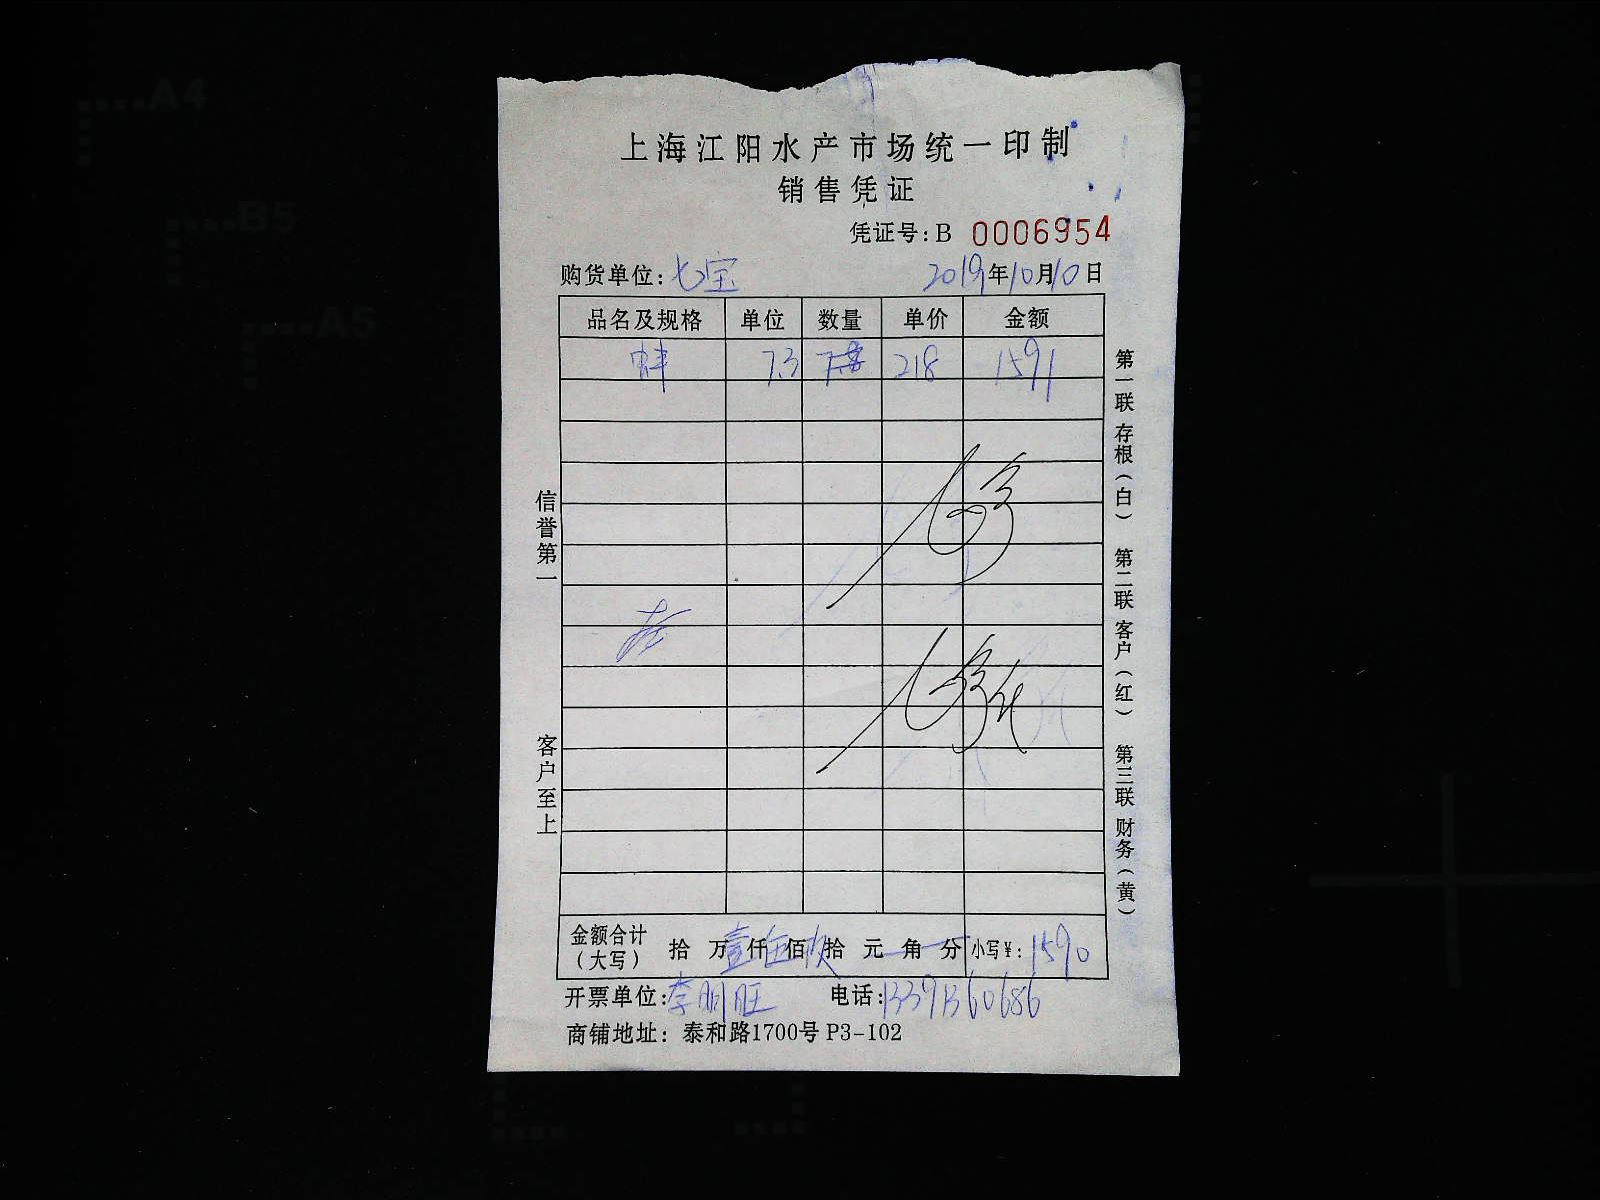 上海江阳水产市场统一印制
销售凭证
凭证号:B 0006954
购货单位:七宝 2019年10月10日
品名及规格 单位 数量 单价 金额
7.3 218 1591
七宝
七宝
信誉第一
客户至上
第一联 存根(白) 第二联 客户(红) 第三联 财务(黄)
金额合计(大写) 拾 万壹仟伍佰玖拾 元 角 分 小写¥:1590
开票单位:李明旺 电话:13391360686
商铺地址: 泰和路1700号 P3-102
A4
B5
A5